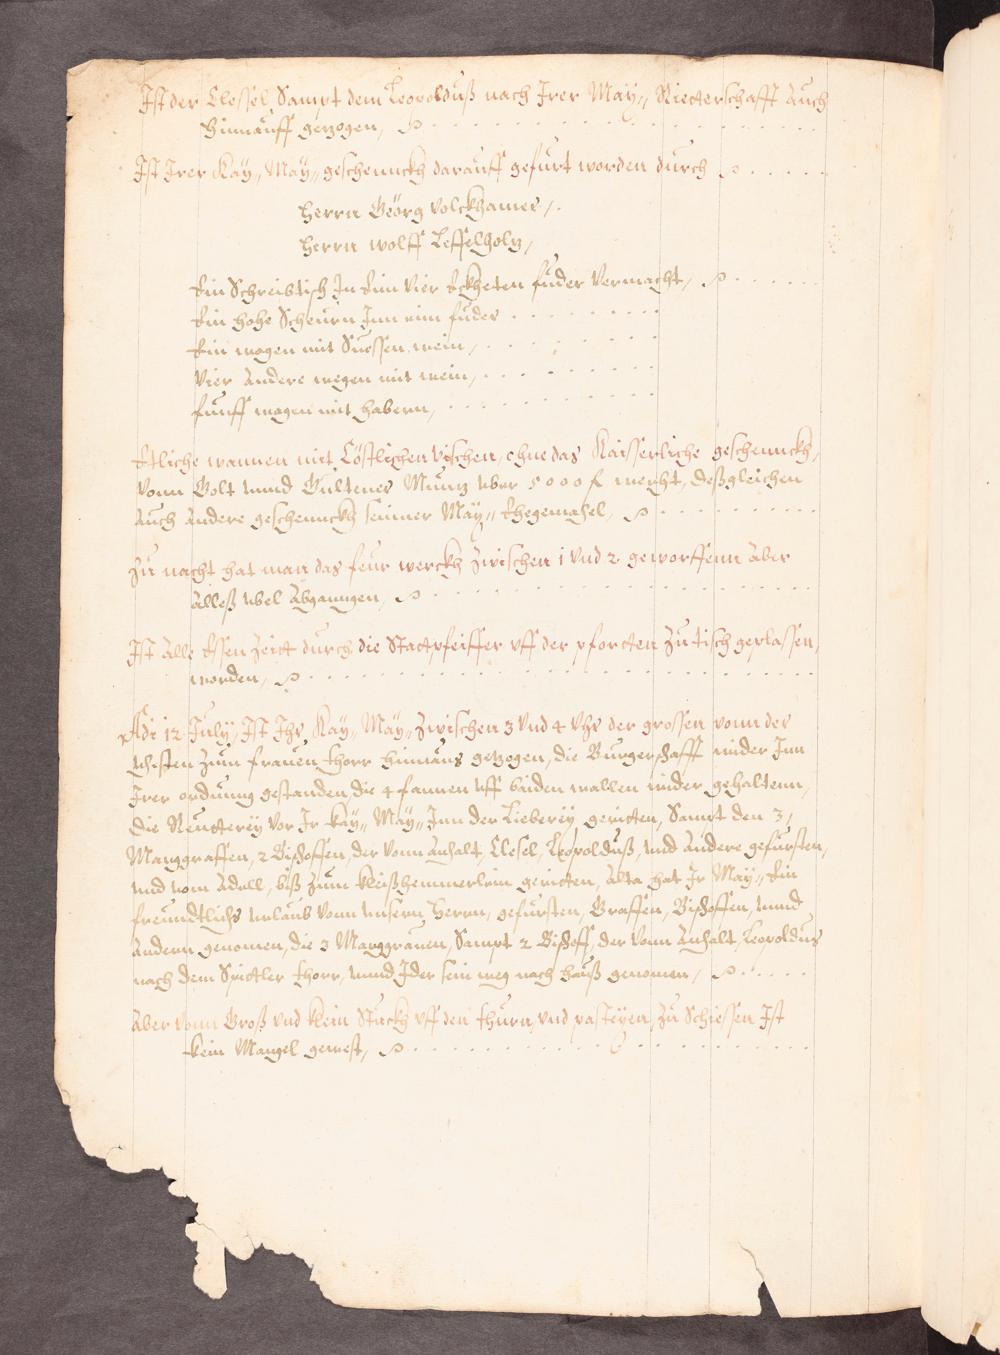 Ist der Clessel Sampt dem Leopolduß nach Irer May,, Rietterschafft Auch
Hinnauff gezogen,
Ist Irer Kay,, May,, geschennckh darauff gefurt worden durch
Herrn Geörg Volckhamer,
Herrn wolff Leffelholtz,
Ein Schreibtisch In Eim Vier Eckheten fuder Vermacht,
Ein hohe Scheurn Inn eim fuder
Ein wagen mit Suessen wein,
Vier Andere wegen mit wein,
funff wagen mit habern,
Ettliche wannen mit Cöstlichen Vischen, ohne das Kaisserliche geschennckh,
Vonn Golt unnd Gultener Muntz uber 5000 f werht, deßgleichen
Auch Andere geschennckh seinner May,, Ehegemahel,
Zu nacht hat man das feur werckh Zwischen 1 Vnd 2 geworffenn Aber
Alleß ubel Abganngen,
Ist Alle Essen Zeitt durch die Stattpfeiffer vff der pfortten Zu tisch geplassen,
worden,
Adi 12 July, Ist Ihr Kay,, May,, Zwischen 3 Vnd 4 Vhr der grossen vonn der
Vhsten Zum frauen thorr hinnaus gezogen, die Burgerschafft wider Inn
Irer ordnung gestanden, die 4 fannen vff baiden wallen wider gehaltenn,
die Reutterey Vor Ir Kay,, May,, Inn der Lieberey geritten, Sampt den 3,
Marggraffen, 2 Bischoffen, der Vonn Anhalt, Clesel, Leopolduß, und Andere gefursten,
und vom Adell, biß Zum geritten, Alta hat Ir May,, Ein
freundtlichs urlaub Vonn unsern Herrn, gefursten, Graffen, Bischoffen, unnd
Andern genomen, die 3 Marggrauen, Sampt 2 Bischoff, der Vonn Anhalt, Leopoldus
nach dem Spittler thorr, unnd Ider sein weg nach hauß genomen,
Aber Vonn Groß Vnd klein Stuckh vff den thurn, Vnd pasteyen, Zu Schiessen Ist
kein Mangel gewest,